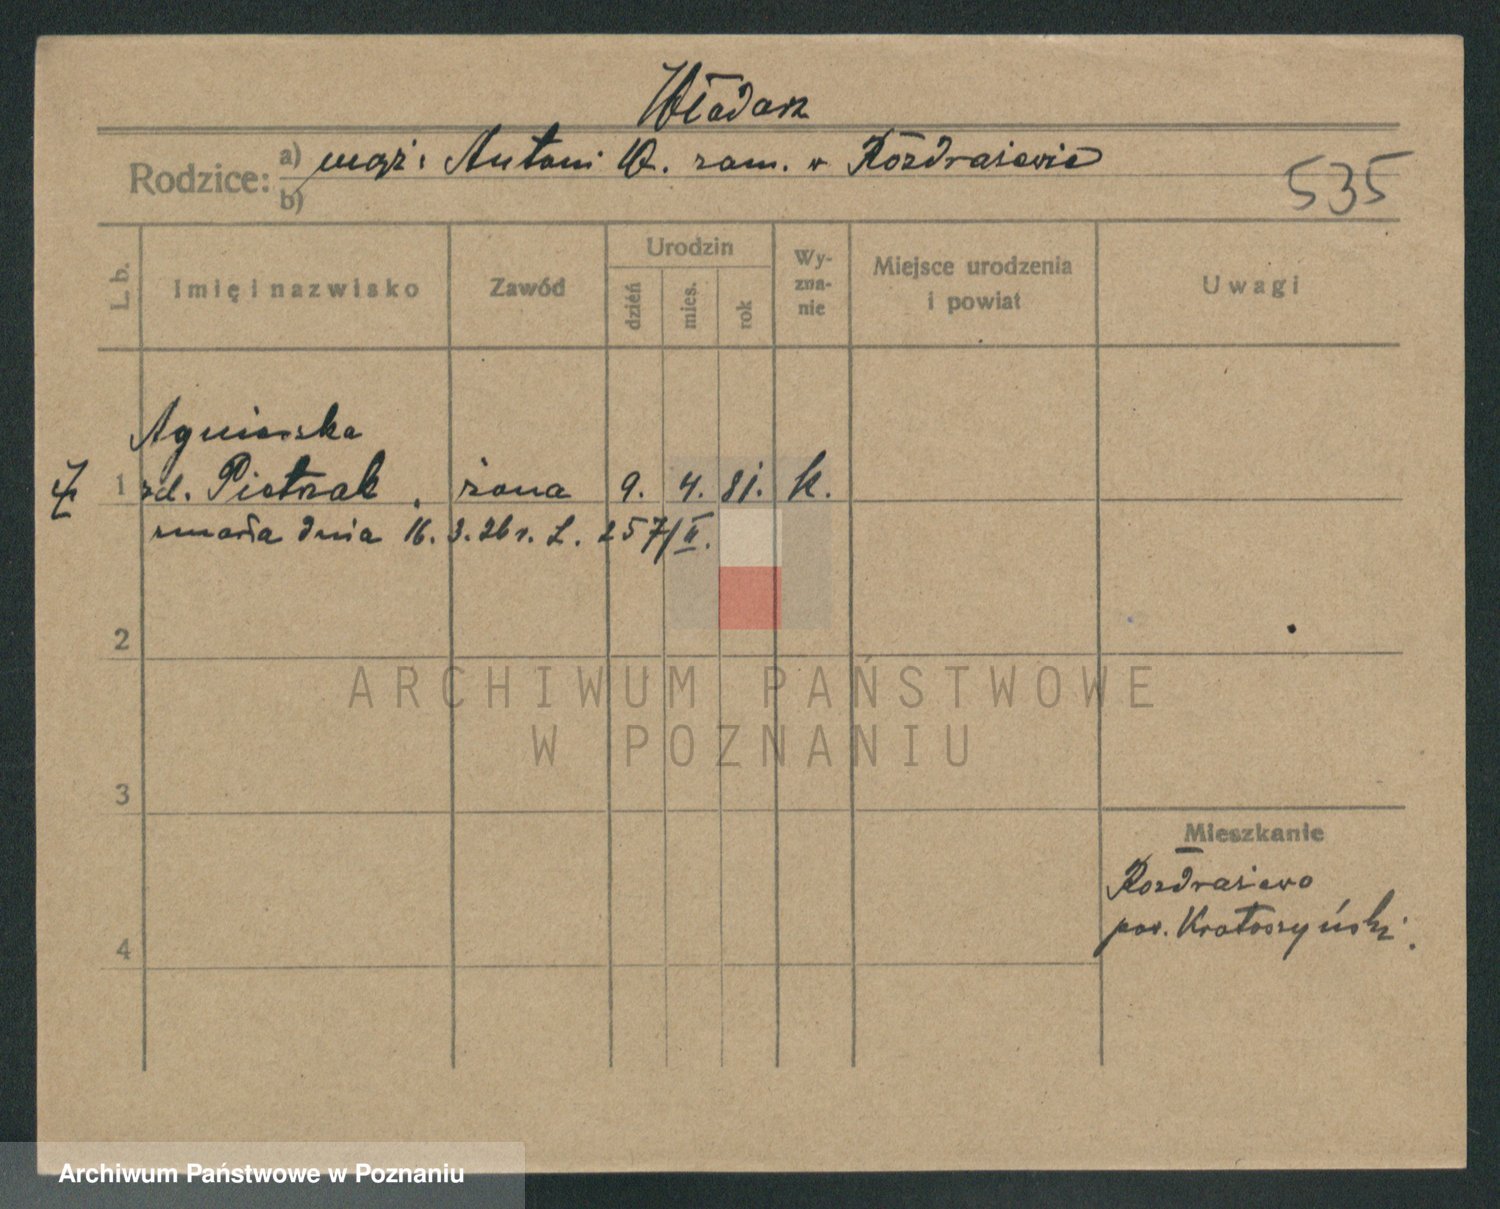 Włodarz
Rodzice: a) mąż: Antoni W. zam. w Rozdrażewie
b)
535
L. b.
Imię i nazwisko
Zawód
Urodzin
dzień
mies.
rok
Wy-
zna-
nie
Miejsce urodzenia
i powiat
Uwagi
Agnieszka
1 zd. Pietrzak, żona 9. 4. 81. k.
zmarła dnia 16. 3. 26 r. L. 257/II.
2
ARCHIWUM PAŃSTWOWE
W POZNANIU
3
Mieszkanie
Rozdrażewo
pow. Krotoszyński.
4
Archiwum Państwowe w Poznaniu